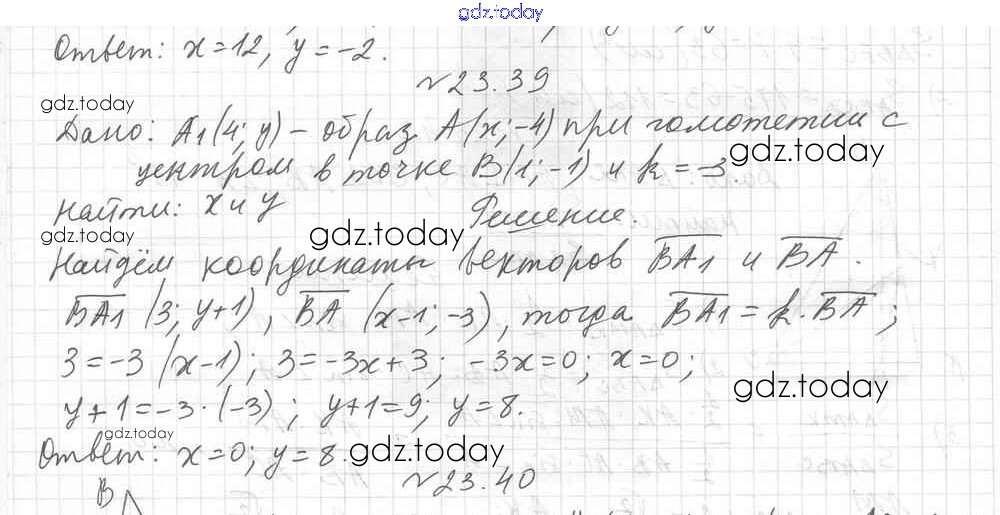 gdz.today
Ответ: x=12, y=-2.
№23.39
gdz.today
Дано: A₁(4; y) - образ A(x; -4) при гомотетии с
центром в точке B(1; -1) и k = -3.
gdz.today
Найти: x и y
Решение.
gdz.today
gdz.today
Найдём координаты векторов BA₁ и BA.
BA₁ (3; y+1), BA (x-1; -3), тогда BA₁ = k·BA;
3=-3(x-1); 3=-3x+3; -3x=0; x=0;
gdz.today
y+1=-3·(-3); y+1=9; y=8.
gdz.today
Ответ: x=0; y=8.
gdz.today
№23.40
B